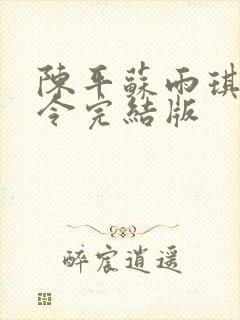 陳平蘇雨琪
令完結版
醉宸逍遥